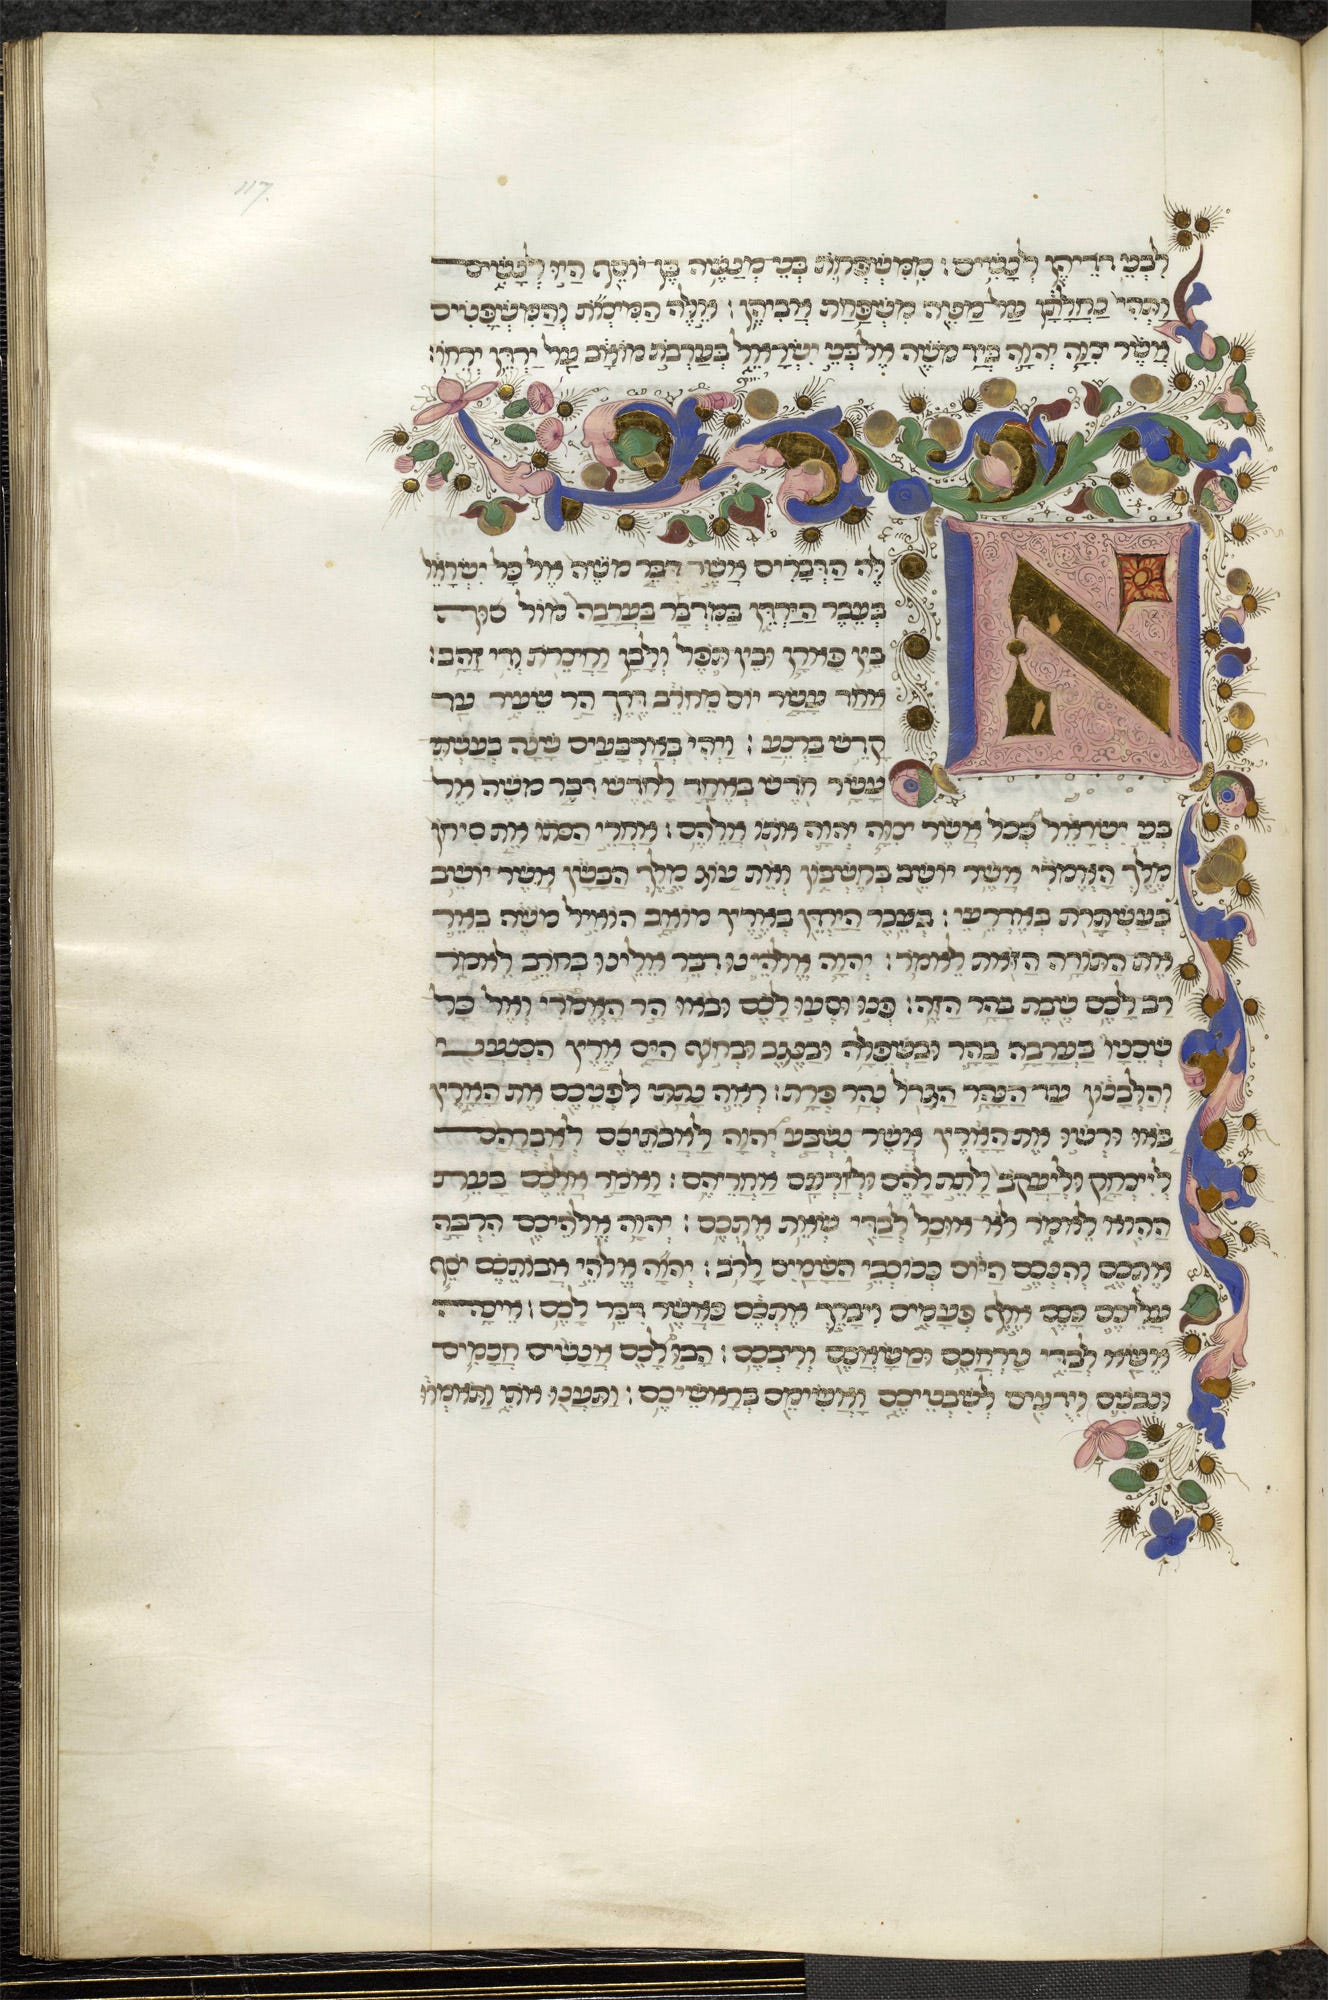 117.
לבני דדיהן לנשים׃ ממשפחת בני מנשה בן יוסף היו לנשים
ותהי נחלתן על מטה משפחת אביהן׃ אלה המצות והמשפטים
אשר צוה יהוה ביד משה אל בני ישראל בערבת מואב על ירדן ירחו׃
א
לה הדברים אשר דבר משה אל כל ישראל
בעבר הירדן במדבר בערבה מול סוף
בין פארן ובין תפל ולבן וחצרת ודי זהב׃
אחד עשר יום מחרב דרך הר שעיר עד
קדש ברנע׃ ויהי בארבעים שנה בעשתי
עשר חדש באחד לחדש דבר משה אל
בני ישראל ככל אשר צוה יהוה אתו אלהם׃ אחרי הכתו את סיחן
מלך האמרי אשר יושב בחשבון ואת עוג מלך הבשן אשר יושב
בעשתרת באדרעי׃ בעבר הירדן בארץ מואב הואיל משה באר
את התורה הזאת לאמר׃ יהוה אלהינו דבר אלינו בחרב לאמר
רב לכם שבת בהר הזה׃ פנו וסעו לכם ובאו הר האמרי ואל כל
שכניו בערבה בהר ובשפלה ובנגב ובחוף הים ארץ הכנעני
והלבנון עד הנהר הגדל נהר פרת׃ ראה נתתי לפניכם את הארץ
באו ורשו את הארץ אשר נשבע יהוה לאבתיכם לאברהם
ליצחק וליעקב לתת להם ולזרעם אחריהם׃ ואמר אלכם בעת
ההוא לאמר לא אוכל לבדי שאת אתכם׃ יהוה אלהיכם הרבה
אתכם והנכם היום ככוכבי השמים לרב׃ יהוה אלהי אבותכם יסף
עליכם ככם אלף פעמים ויברך אתכם כאשר דבר לכם׃ איכה
אשא לבדי טרחכם ומשאכם וריבכם׃ הבו לכם אנשים חכמים
ונבנים וידעים לשבטיכם ואשימם בראשיכם׃ ותענו אתי ותאמרו